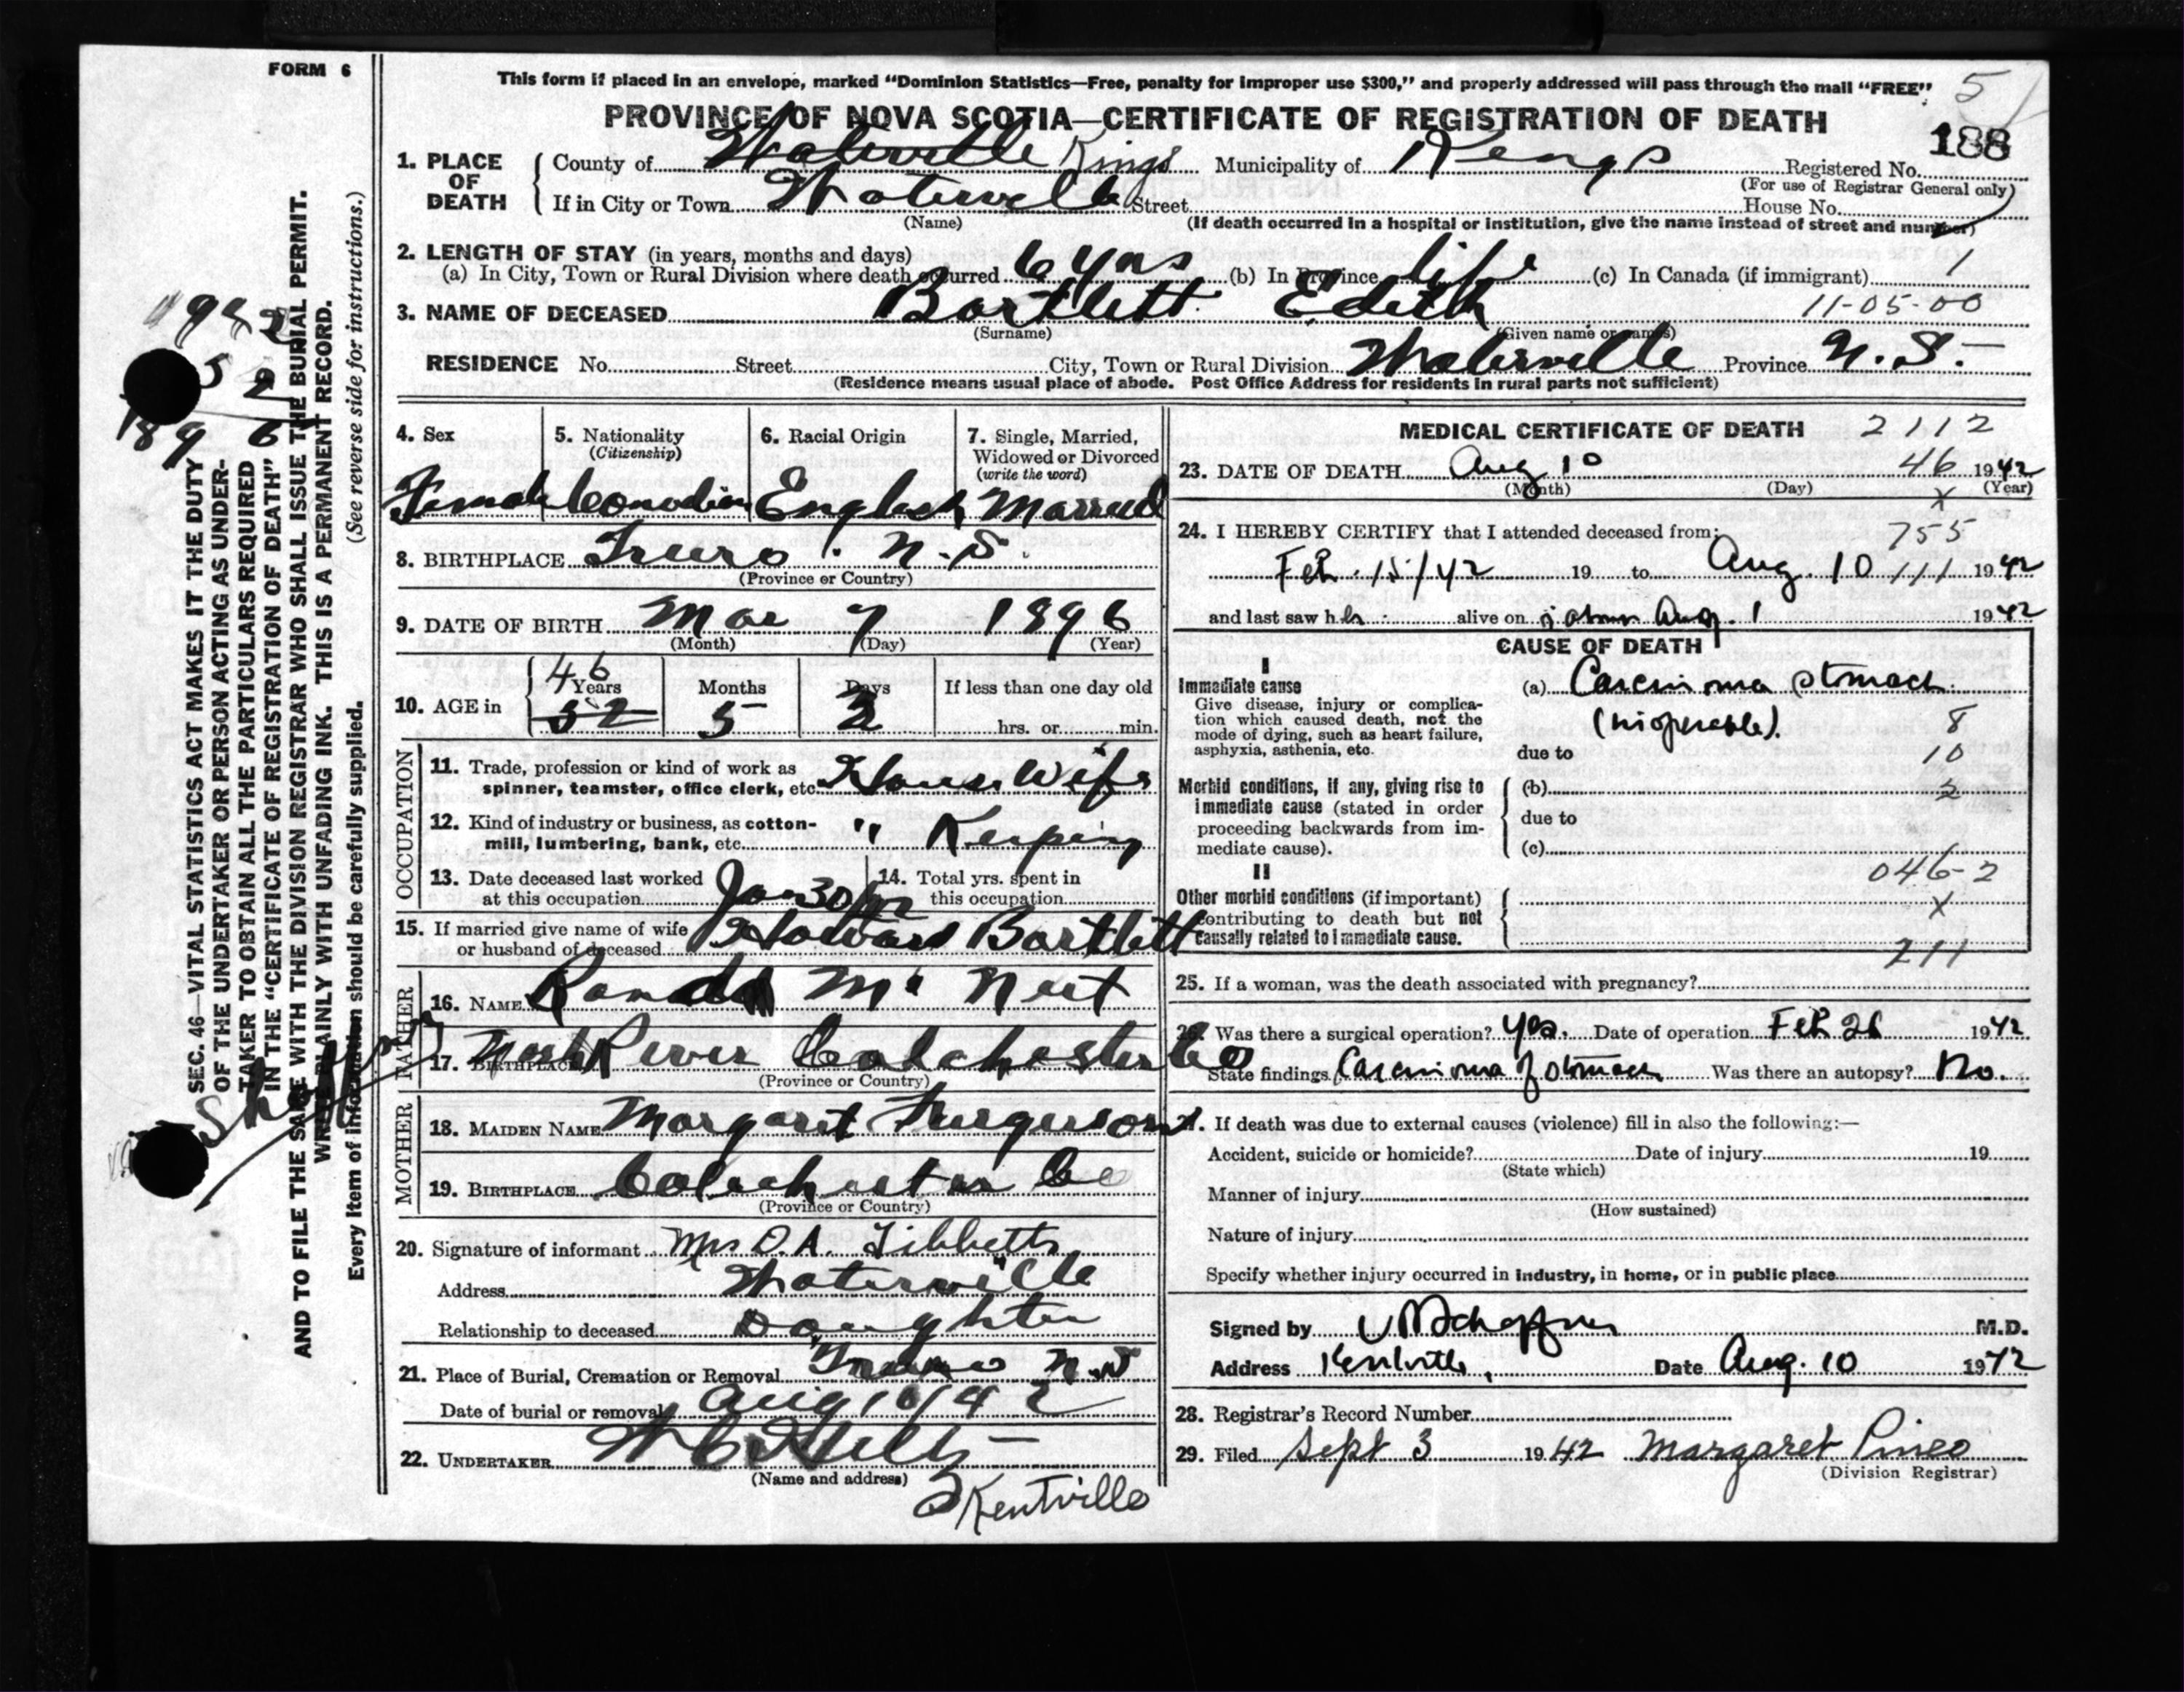 FORM 6
This form if placed in an envelope, marked "Dominion Statistics—Free, penalty for improper use $300," and properly addressed will pass through the mail "FREE"
5
PROVINCE OF NOVA SCOTIA—CERTIFICATE OF REGISTRATION OF DEATH
188
1. PLACE OF DEATH
County of Waterville Kings Municipality of Kings Registered No.
(For use of Registrar General only)
If in City or Town Waterville Street House No.
(Name) (If death occurred in a hospital or institution, give the name instead of street and number)
2. LENGTH OF STAY (in years, months and days)
(a) In City, Town or Rural Division where death occurred 6 yrs (b) In Province life (c) In Canada (if immigrant) 1
3. NAME OF DECEASED Bartlett Edith 11-05-00
(Surname) (Given name or names)
RESIDENCE No. Street City, Town or Rural Division Waterville Province N.S.
(Residence means usual place of abode. Post Office Address for residents in rural parts not sufficient)
4. Sex
Female
5. Nationality
(Citizenship)
Canadian
6. Racial Origin
English
7. Single, Married, Widowed or Divorced
(write the word)
Married
8. BIRTHPLACE Truro N.S.
(Province or Country)
9. DATE OF BIRTH Mar 7 1896
(Month) (Day) (Year)
10. AGE in 46 Years Months Days If less than one day old
52 5 3 hrs. or min.
OCCUPATION
11. Trade, profession or kind of work as
spinner, teamster, office clerk, etc. House Wife
12. Kind of industry or business, as cotton-
mill, lumbering, bank, etc. " Keeping
13. Date deceased last worked
at this occupation Jan 30/42
14. Total yrs. spent in
this occupation
15. If married give name of wife
or husband of deceased Howard Bartlett
FATHER
16. NAME Mc Nut
17. BIRTHPLACE North River Colchester Co
(Province or Country)
MOTHER
18. MAIDEN NAME Margaret Furguson
19. BIRTHPLACE Colchester Co
(Province or Country)
20. Signature of informant Mrs O.A. Tibbetts
Address Waterville
Relationship to deceased Daughter
21. Place of Burial, Cremation or Removal Truro N.S
Date of burial or removal Aug 10/42
22. UNDERTAKER
(Name and address)
Kentville
MEDICAL CERTIFICATE OF DEATH 2112
23. DATE OF DEATH Aug 10 46 1942
(Month) (Day) (Year)
x
24. I HEREBY CERTIFY that I attended deceased from:
755
Feb. 15/42 19 to Aug. 10 111 1942
and last saw h er alive on Aug. 1 1942
CAUSE OF DEATH
I
Immediate cause
Give disease, injury or complica-
tion which caused death, not the
mode of dying, such as heart failure,
asphyxia, asthenia, etc.
(a) Carcinoma stomach.
(inoperable).
8
due to 10
Morbid conditions, if any, giving rise to
immediate cause (stated in order
proceeding backwards from im-
mediate cause).
(b) 2
due to
(c)
II
046-2
Other morbid conditions (if important)
contributing to death but not
causally related to immediate cause.
X
211
25. If a woman, was the death associated with pregnancy?
26. Was there a surgical operation? Yes. Date of operation Feb 26 1942
State findings Carcinoma of stomach Was there an autopsy? No.
27. If death was due to external causes (violence) fill in also the following:—
Accident, suicide or homicide? Date of injury 19
(State which)
Manner of injury
(How sustained)
Nature of injury
Specify whether injury occurred in industry, in home, or in public place
Signed by M.D.
Address Kentville, Date Aug. 10 1942
28. Registrar's Record Number
29. Filed Sept 3 1942 Margaret Pineo
(Division Registrar)
SEC. 46—VITAL STATISTICS ACT MAKES IT THE DUTY
OF THE UNDERTAKER OR PERSON ACTING AS UNDER-
TAKER TO OBTAIN ALL THE PARTICULARS REQUIRED
IN THE "CERTIFICATE OF REGISTRATION OF DEATH"
AND TO FILE THE SAME WITH THE DIVISION REGISTRAR WHO SHALL ISSUE THE BURIAL PERMIT.
WRITE PLAINLY WITH UNFADING INK. THIS IS A PERMANENT RECORD.
Every item of information should be carefully supplied. (See reverse side for instructions.)